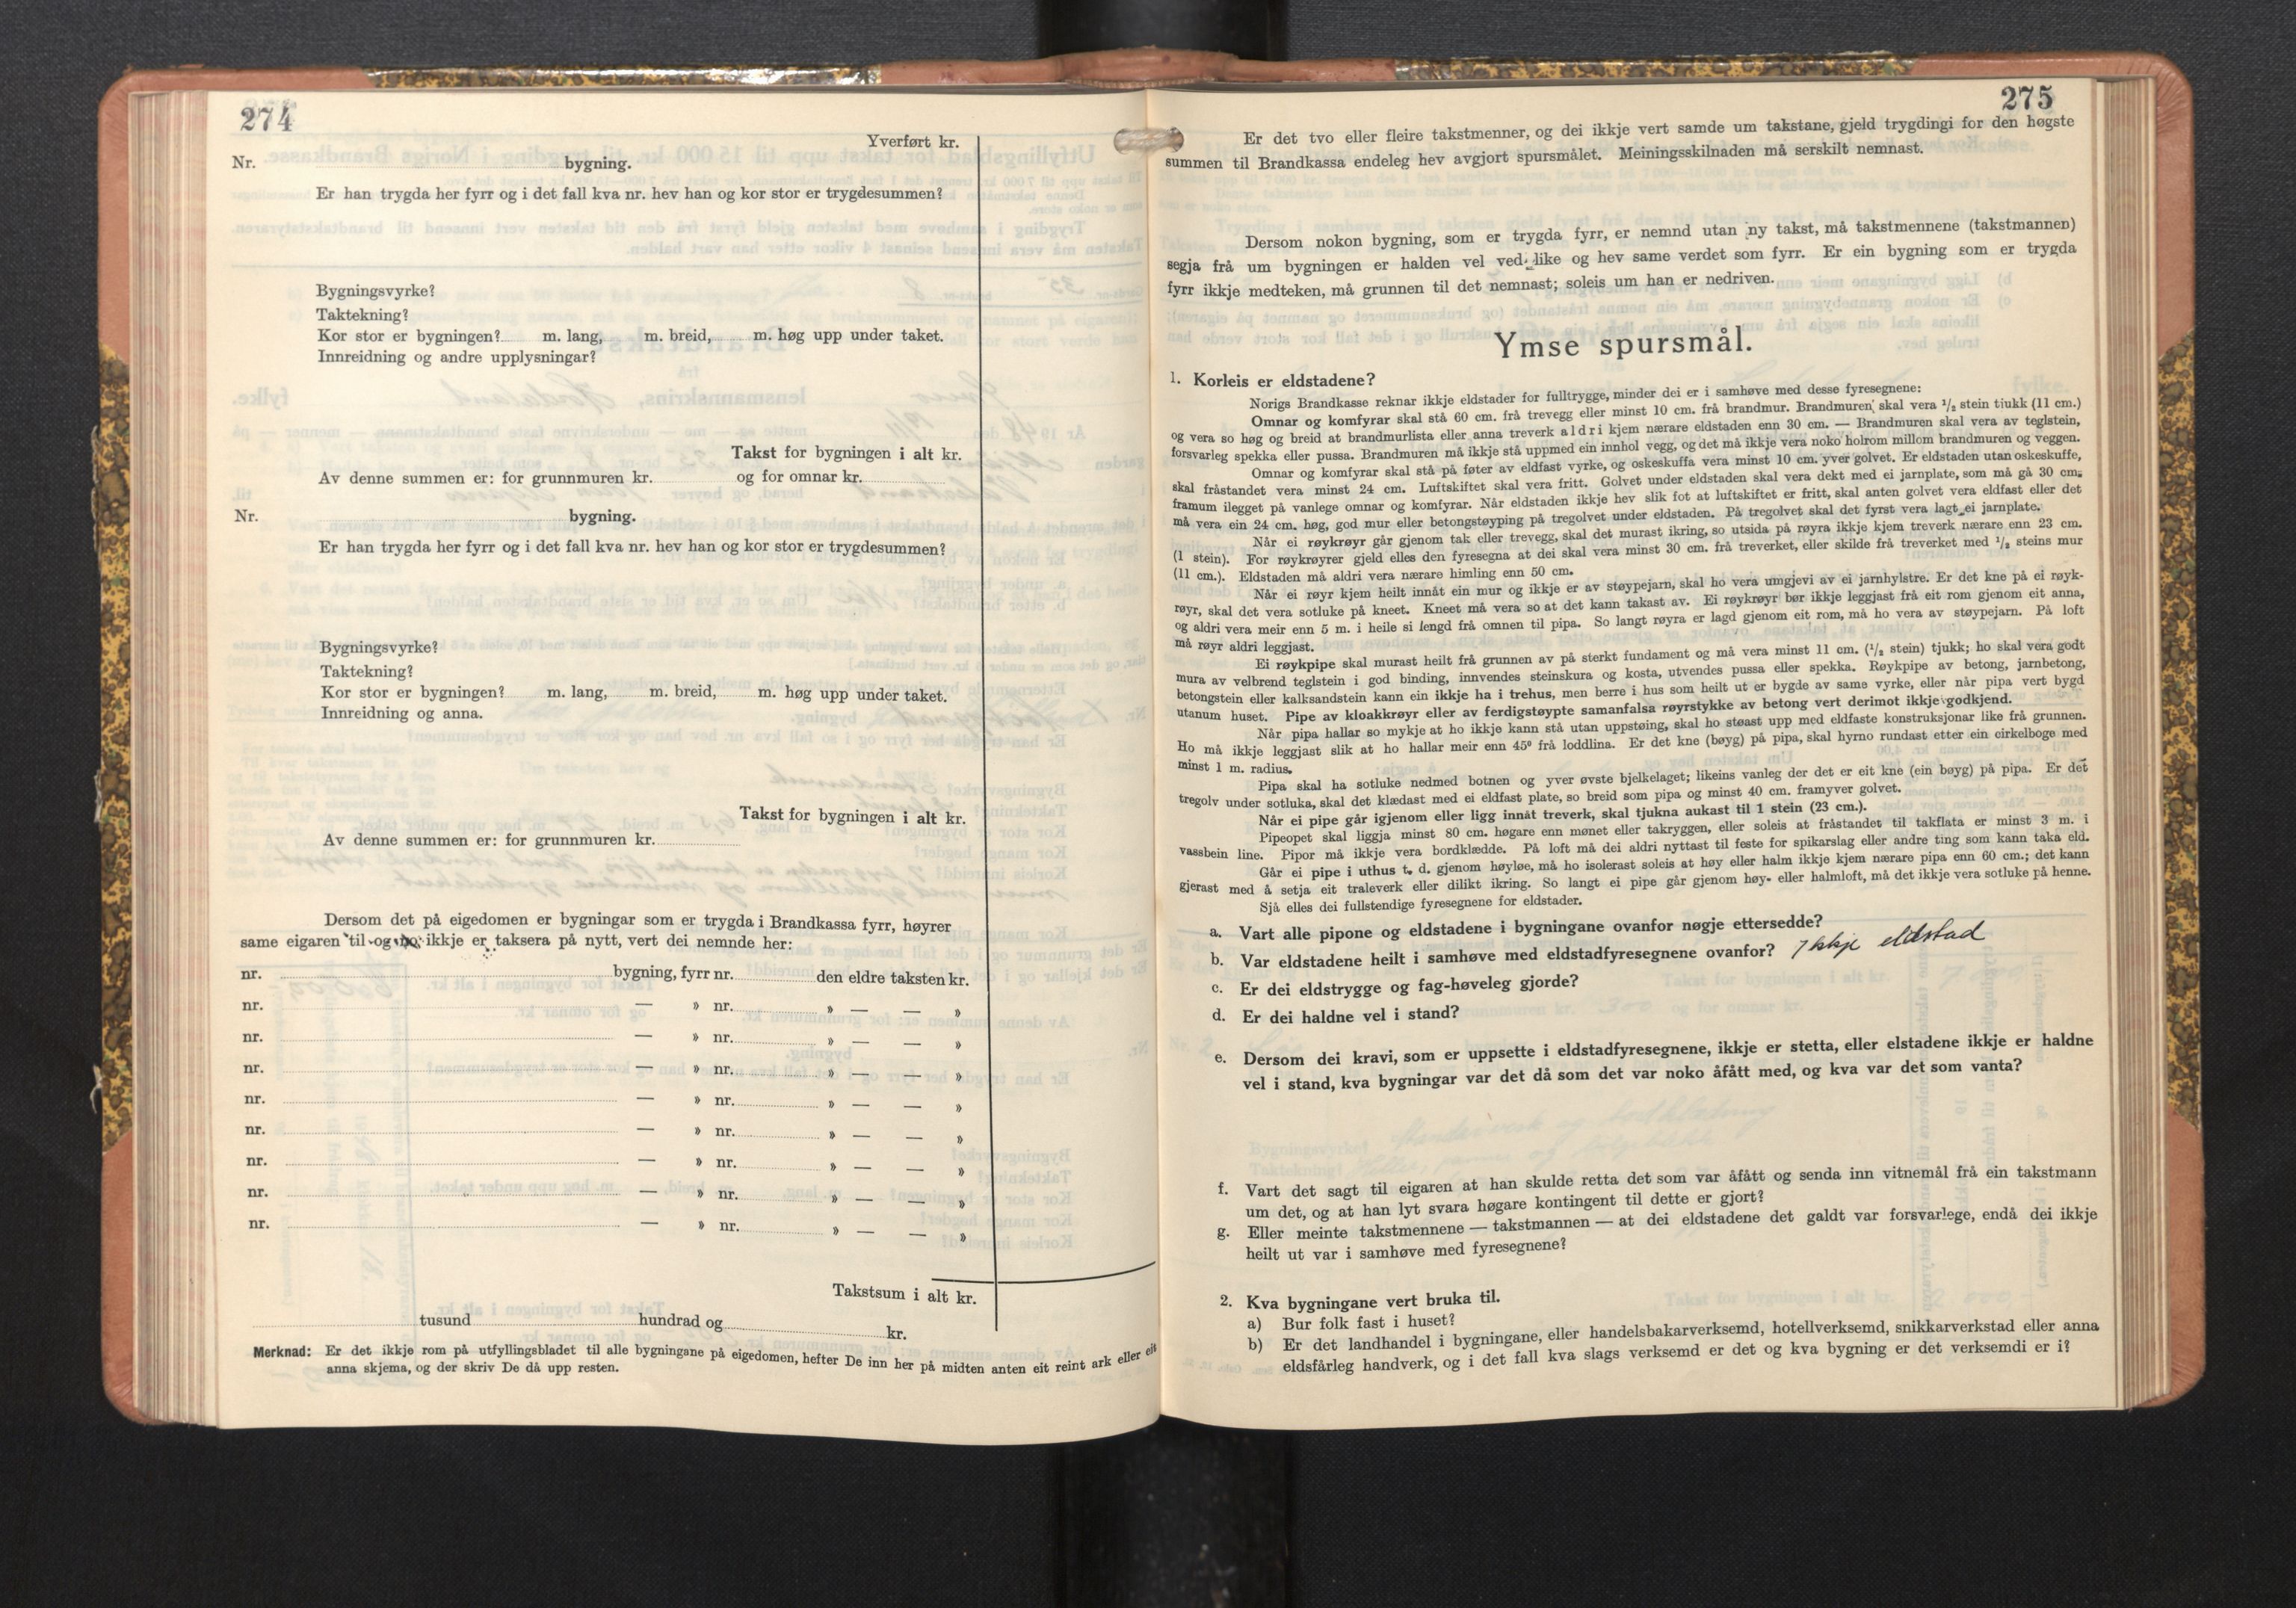 274
Yverført kr.
Nr. bygning.
Er han trygda her fyrr og i det fall kva nr. hev han og kor stor er trygdesummen?
Bygningsvyrke?
Taktekning?
Kor stor er bygningen? m. lang, m. breid, m. høg upp under taket.
Innreidning og andre upplysningar?
Takst for bygningen i alt kr.
Av denne summen er: for grunnmuren kr. og for omnar kr.
Nr. bygning.
Er han trygda her fyrr og i det fall kva nr. hev han og kor stor er trygdesummen?
Bygningsvyrke?
Taktekning?
Kor stor er bygningen? m. lang, m. breid, m. høg upp under taket.
Innreidning og anna.
Takst for bygningen i alt kr.
Av denne summen er: for grunnmuren kr.
Dersom det på eigedomen er bygningar som er trygda i Brandkassa fyrr, høyrer
same eigaren til og no ikkje er taksera på nytt, vert dei nemnde her:
nr. bygning, fyrr nr. den eldre taksten kr.
nr. — » nr. » — — »
nr. — » nr. » — — »
nr. — » nr. » — — »
nr. — » nr. » — — »
nr. — » nr. » — — »
nr. — » nr. » — — »
nr. — » nr. » — — »
nr. — » nr. » — — »
Takstsum i alt kr.
tusund hundrad og kr.
Merknad: Er det ikkje rom på utfyllingsbladet til alle bygningane på eigedomen, hefter De inn her på midten anten eit reint ark eller eit
anna skjema, og der skriv De då upp resten.
275
Er det tvo eller fleire takstmenner, og dei ikkje vert samde um takstane, gjeld trygdingi for den høgste
summen til Brandkassa endeleg hev avgjort spursmålet. Meiningsskilnaden må serskilt nemnast.
Dersom nokon bygning, som er trygda fyrr, er nemnd utan ny takst, må takstmennene (takstmannen)
segja frå um bygningen er halden vel ved like og hev same verdet som fyrr. Er ein bygning som er trygda
fyrr ikkje medteken, må grunnen til det nemnast; soleis um han er nedriven.
Ymse spursmål.
1. Korleis er eldstadene?
Norigs Brandkasse reknar ikkje eldstader for fulltrygge, minder dei er i samhøve med desse fyresegnene:
Omnar og komfyrar skal stå 60 cm. frå trevegg eller minst 10 cm. frå brandmur. Brandmuren skal vera ¹/₂ stein tjukk (11 cm.)
og vera so høg og breid at brandmurlista eller anna treverk aldri kjem nærare eldstaden enn 30 cm. — Brandmuren skal vera av teglstein,
forsvarleg spekka eller pussa. Brandmuren må ikkje stå uppmed ein innhol vegg, og det må ikkje vera noko holrom millom brandmuren og veggen.
Omnar og komfyrar skal stå på føter av eldfast vyrke, og oskeskuffa vera minst 10 cm. yver golvet. Er eldstaden utan oskeskuffe,
skal fråstandet vera minst 24 cm. Luftskiftet skal vera fritt. Golvet under eldstaden skal vera dekt med ei jarnplate, som må gå 30 cm.
framum ilegget på vanlege omnar og komfyrar. Når eldstaden ikkje hev slik fot at luftskiftet er fritt, skal anten golvet vera eldfast eller det
må vera ein 24 cm. høg, god mur eller betongstøyping på tregolvet under eldstaden. På tregolvet skal det fyrst vera lagt ei jarnplate.
Når ei røykrøyr går gjenom tak eller trevegg, skal det murast ikring, so utsida på røyra ikkje kjem treverk nærare enn 23 cm.
(1 stein). For røykrøyrer gjeld elles den fyresegna at dei skal vera minst 30 cm. frå treverket, eller skilde frå treverket med ¹/₂ steins mur
(11 cm.). Eldstaden må aldri vera nærare himling enn 50 cm.
Når ei røyr kjem heilt innåt ein mur og ikkje er av støypejarn, skal ho vera umgjevi av ei jarnhylstre. Er det kne på ei røyk-
røyr, skal det vera sotluke på kneet. Kneet må vera so at det kann takast av. Ei røykrøyr bør ikkje leggjast frå eit rom gjenom eit anna,
og aldri vera meir enn 5 m. i heile si lengd frå omnen til pipa. So langt røyra er lagd gjenom eit rom, må ho vera av støypejarn. På loft
må røyr aldri leggjast.
Ei røykpipe skal murast heilt frå grunnen av på sterkt fundament og må vera minst 11 cm. (¹/₂ stein) tjukk; ho skal vera godt
mura av velbrend teglstein i god binding, innvendes steinskura og kosta, utvendes pussa eller spekka. Røykpipe av betong, jarnbetong,
betongstein eller kalksandstein kann ein ikkje ha i trehus, men berre i hus som heilt ut er bygde av same vyrke, eller når pipa vert bygd
utanum huset. Pipe av kloakkrøyr eller av ferdigstøypte samanfalsa røyrstykke av betong vert derimot ikkje godkjend.
Når pipa hallar so mykje at ho ikkje kann stå utan uppstøing, skal ho støast upp med eldfaste konstruksjonar like frå grunnen.
Ho må ikkje leggjast slik at ho hallar meir enn 45° frå loddlina. Er det kne (bøyg) på pipa, skal hyrno rundast etter ein cirkelboge med
minst 1 m. radius.
Pipa skal ha sotluke nedmed botnen og yver øvste bjelkelaget; likeins vanleg der det er eit kne (ein bøyg) på pipa. Er det
tregolv under sotluka, skal det klædast med ei eldfast plate, so breid som pipa og minst 40 cm. framyver golvet.
Når ei pipe går igjenom eller ligg innåt treverk, skal tjukna aukast til 1 stein (23 cm.).
Pipeopet skal liggja minst 80 cm. høgare enn mønet eller takryggen, eller soleis at fråstandet til takflata er minst 3 m. i
vassbein line. Pipor må ikkje vera bordklædde. På loft må dei aldri nyttast til feste for spikarslag eller andre ting som kann taka eld.
Går ei pipe i uthus t. d. gjenom høyløe, må ho isolerast soleis at høy eller halm ikkje kjem nærare pipa enn 60 cm.; det kann
gjerast med å setja eit traleverk eller dilikt ikring. So langt ei pipe går gjenom høy- eller halmloft, må det ikkje vera sotluke på henne.
Sjå elles dei fullstendige fyresegnene for eldstader.
a. Vart alle pipone og eldstadene i bygningane ovanfor nøgje ettersedde?
b. Var eldstadene heilt i samhøve med eldstadfyresegnene ovanfor? Ikkje eldstad
c. Er dei eldstrygge og fag-høveleg gjorde?
d. Er dei haldne vel i stand?
e. Dersom dei kravi, som er uppsette i eldstadfyresegnene, ikkje er stetta, eller elstadene ikkje er haldne
vel i stand, kva bygningar var det då som det var noko åfått med, og kva var det som vanta?
f. Vart det sagt til eigaren at han skulde retta det som var åfått og senda inn vitnemål frå ein takstmann
um det, og at han lyt svara høgare kontingent til dette er gjort?
g. Eller meinte takstmennene — takstmannen — at dei eldstadene det galdt var forsvarlege, endå dei ikkje
heilt ut var i samhøve med fyresegnene?
2. Kva bygningane vert bruka til.
a) Bur folk fast i huset?
b) Er det landhandel i bygningane, eller handelsbakarverksemd, hotellverksemd, snikkarverkstad eller anna
eldsfårleg handverk, og i det fall kva slags verksemd er det og kva bygning er det verksemdi er i?